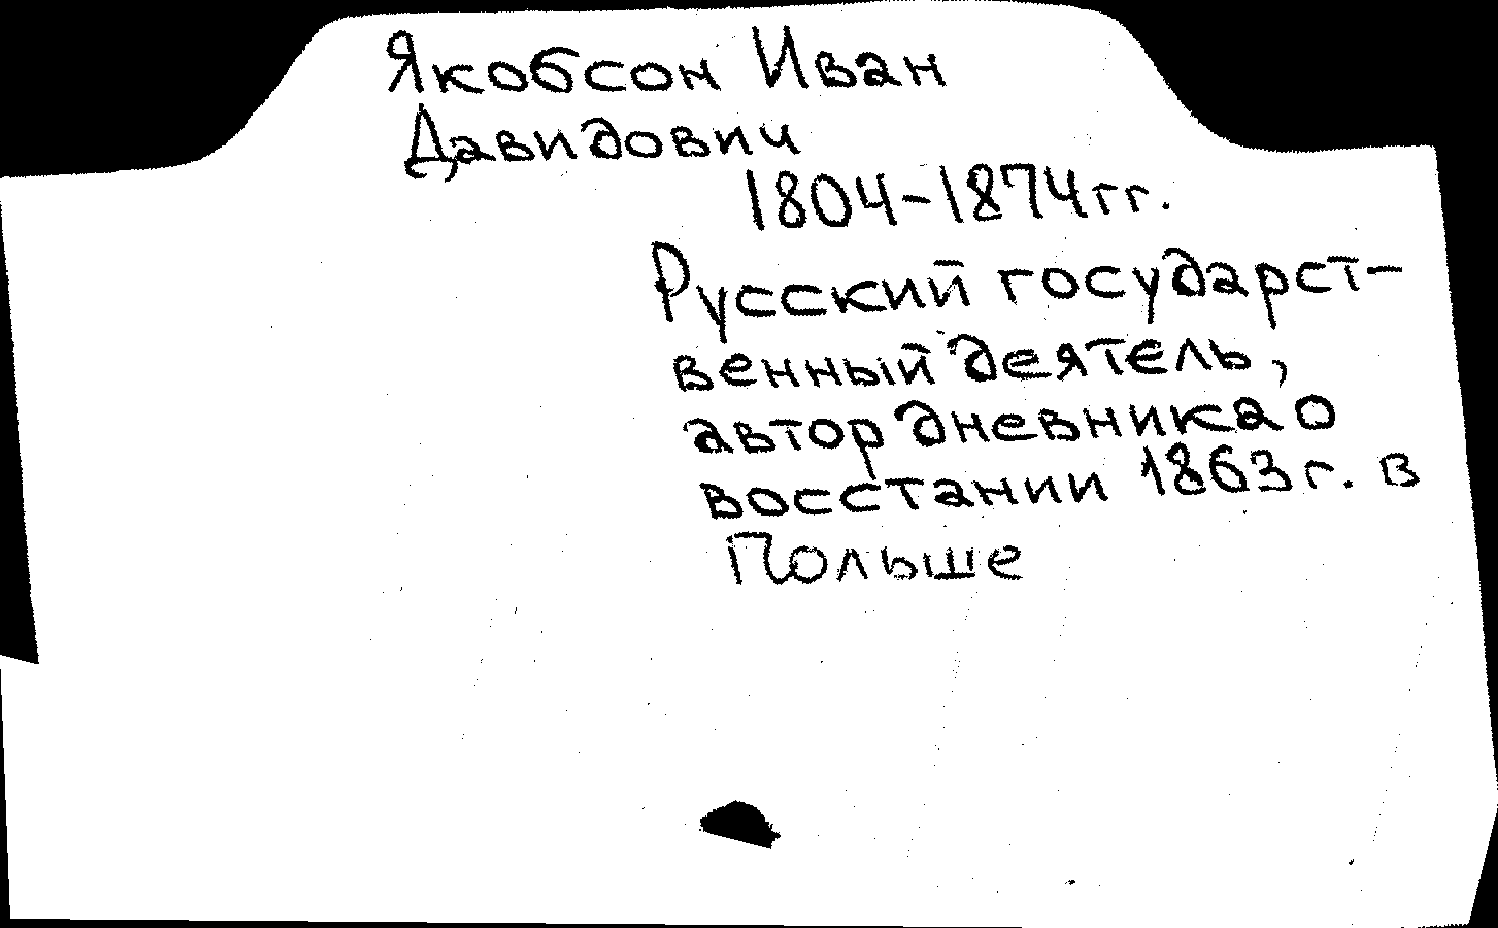 Якобсон Иван
Давидович
1804-1874гг.
Русский государст-
венный деятель,
автор дневника о
восстании 1863г. в
Польше